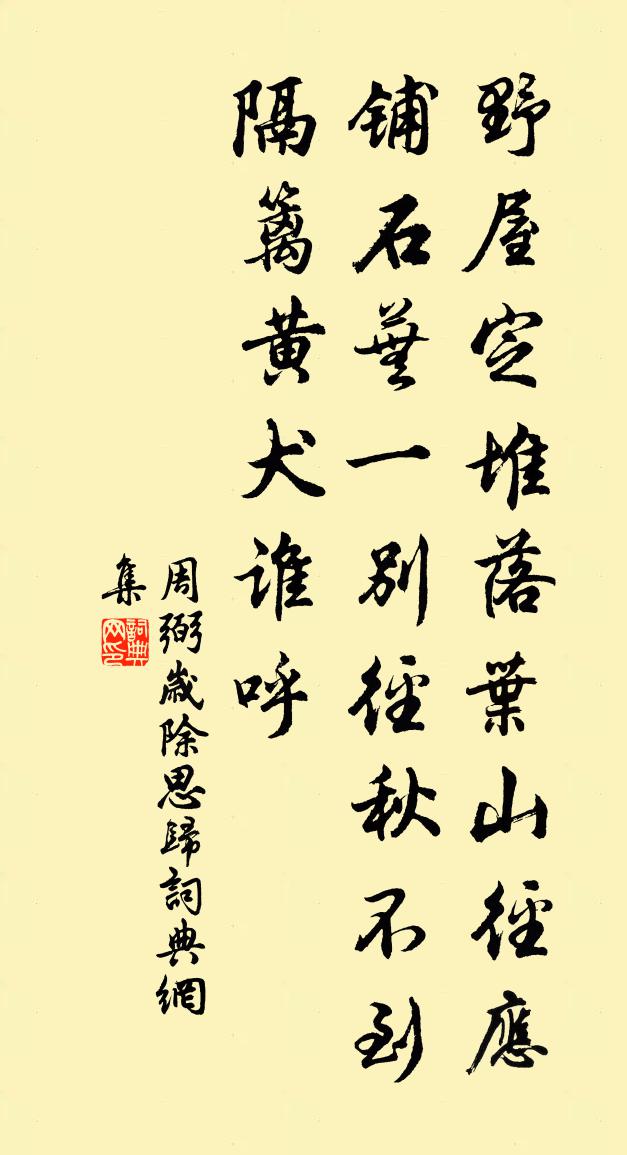 野屋定堆落葉山徑應
鋪石蕪一別徑秋不到
隔籬黃犬誰呼
周弼歲除思歸詞典網
集
詞典網印